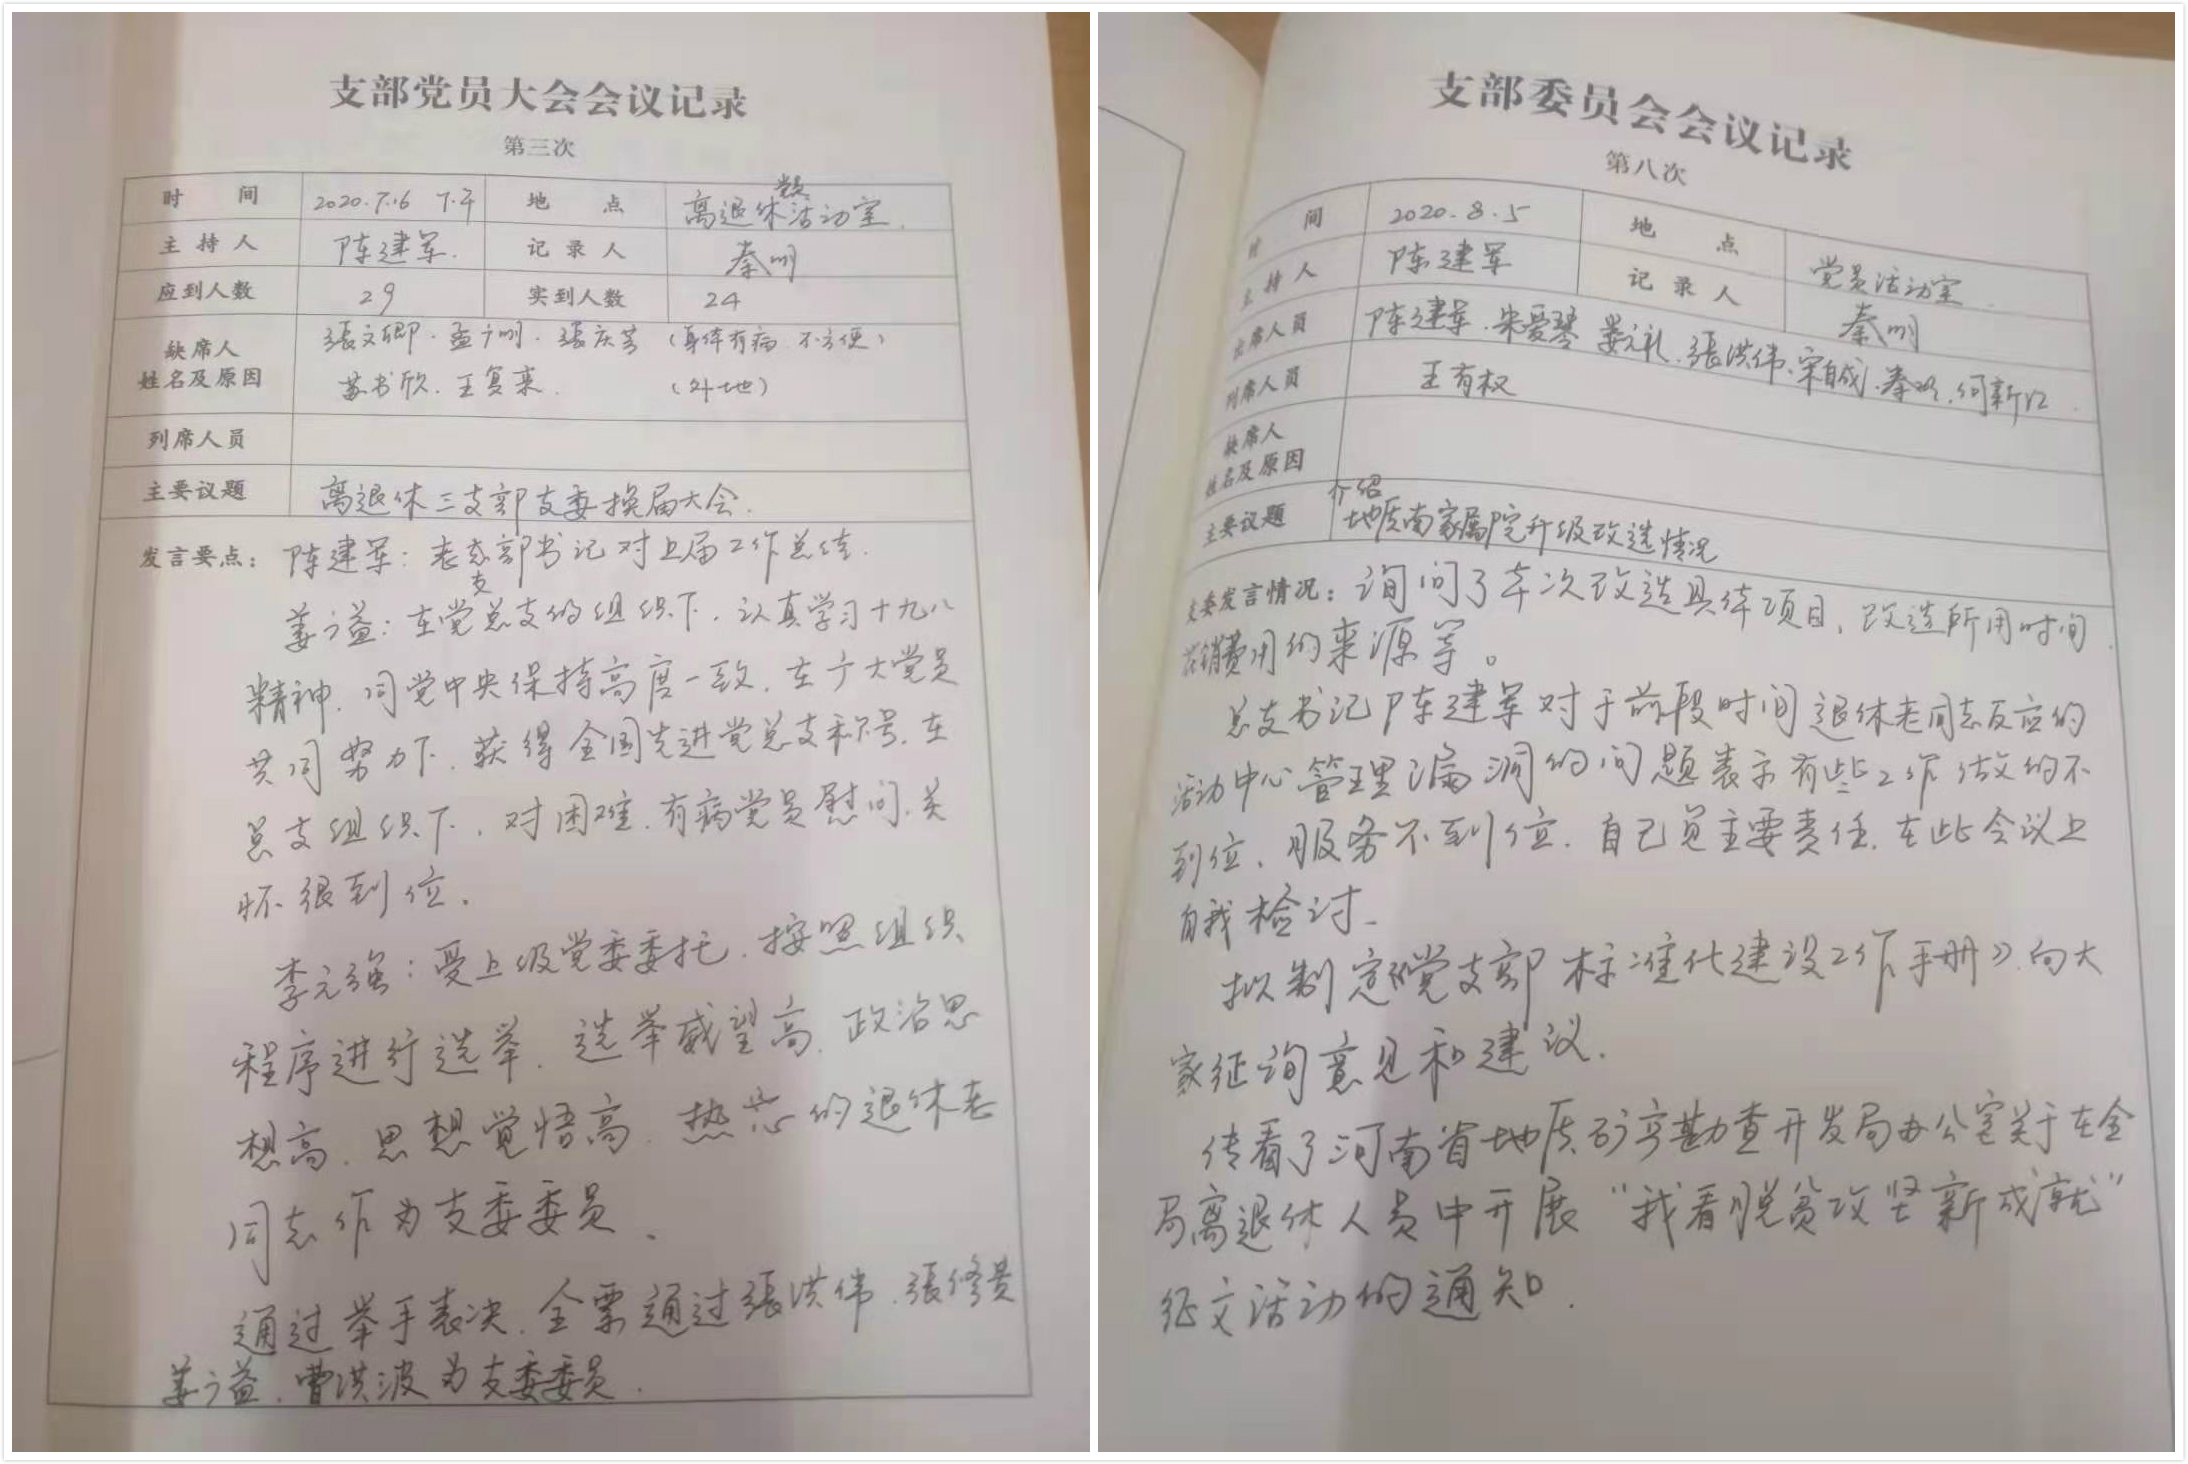 支部党员大会会议记录
第三次
时间 2020.7.16 下午 地点 离退休党员活动室.
主持人 陈建军. 记录人 秦明
应到人数 29 实到人数 24
缺席人 張文卿. 孟广明. 張庆芳 (身体有病 不方便)
姓名及原因 苏书欣. 王复来. (外地)
列席人员
主要议题 离退休三支部支委换届大会.
发言要点: 陈建军: 老支部书记对上届工作总结.
姜广益: 在党总支的组织下, 认真学习十九八
精神. 同党中央保持高度一致. 在广大党员
共同努力下. 获得全国先进党总支称号. 在
总支组织下, 对困难. 有病党员慰问. 关
怀很到位.
李元强: 受上级党委委托. 按照组织
程序进行选举. 选举威望高. 政治思
想高. 思想觉悟高. 热心的退休老
同志作为支委委员.
通过举手表决. 全票通过張洪伟. 張修贵
姜广益. 曹洪波为支委委员.
支部委员会会议记录
第八次
时间 2020.8.5 地点 党员活动室.
主持人 陈建军 记录人 秦明
出席人员 陈建军. 宋爱琴 姜元礼. 張洪伟. 宋自成. 秦明. 何新江.
列席人员 王有权
缺席人
姓名及原因
主要议题 介绍地质南家属院升级改造情况
支委发言情况: 询问了本次改造具体项目, 改造所用时间.
花销费用的来源等。
总支书记陈建军对于前段时间退休老同志反应的
活动中心管理漏洞的问题表示有些工作做的不
到位、服务不到位. 自己负主要责任. 在此会议上
自我检讨.
拟制定《党支部标准化建设工作手册》. 向大
家征询意见和建议.
传看了河南省地质矿产勘查开发局办公室关于在全
局离退休人员中开展“我看脱贫攻坚新成就”
征文活动的通知.